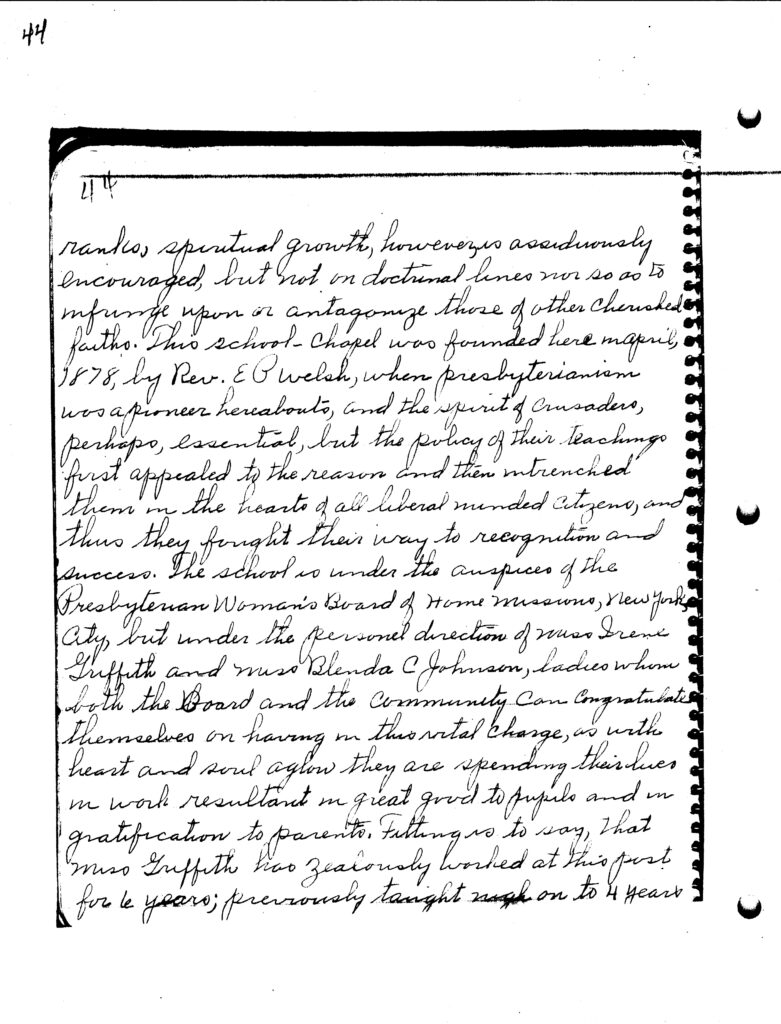 44
44
ranks, spiritual growth, however, is assiduously
encouraged, but not on doctrinal lines nor so as to
infringe upon or antagonize those of other cherished
faiths. This school-chapel was founded here in april,
1878, by Rev. E P Welsh, when presbyterianism
was a pioneer hereabouts, and the spirit of crusaders,
perhaps, essential, but the policy of their teachings
first appealed to the reason and then intrenched
them in the hearts of all liberal minded citizens, and
thus they fought their way to recognition and
success. The school is under the auspices of the
Presbyterian Woman's Board of Home Missions, New York,
City, but under the personel direction of Miss Irene
Griffith and Miss Blenda C Johnson, ladies whom
both the Board and the community can congratulate
themselves on having in this vital charge, as with
heart and soul aglow they are spending their lives
in work resultant in great good to pupils and in
gratification to parents. Fitting is to say, that
Miss Griffith has zealously worked at this post
for 6 years; previously taught nigh on to 4 years